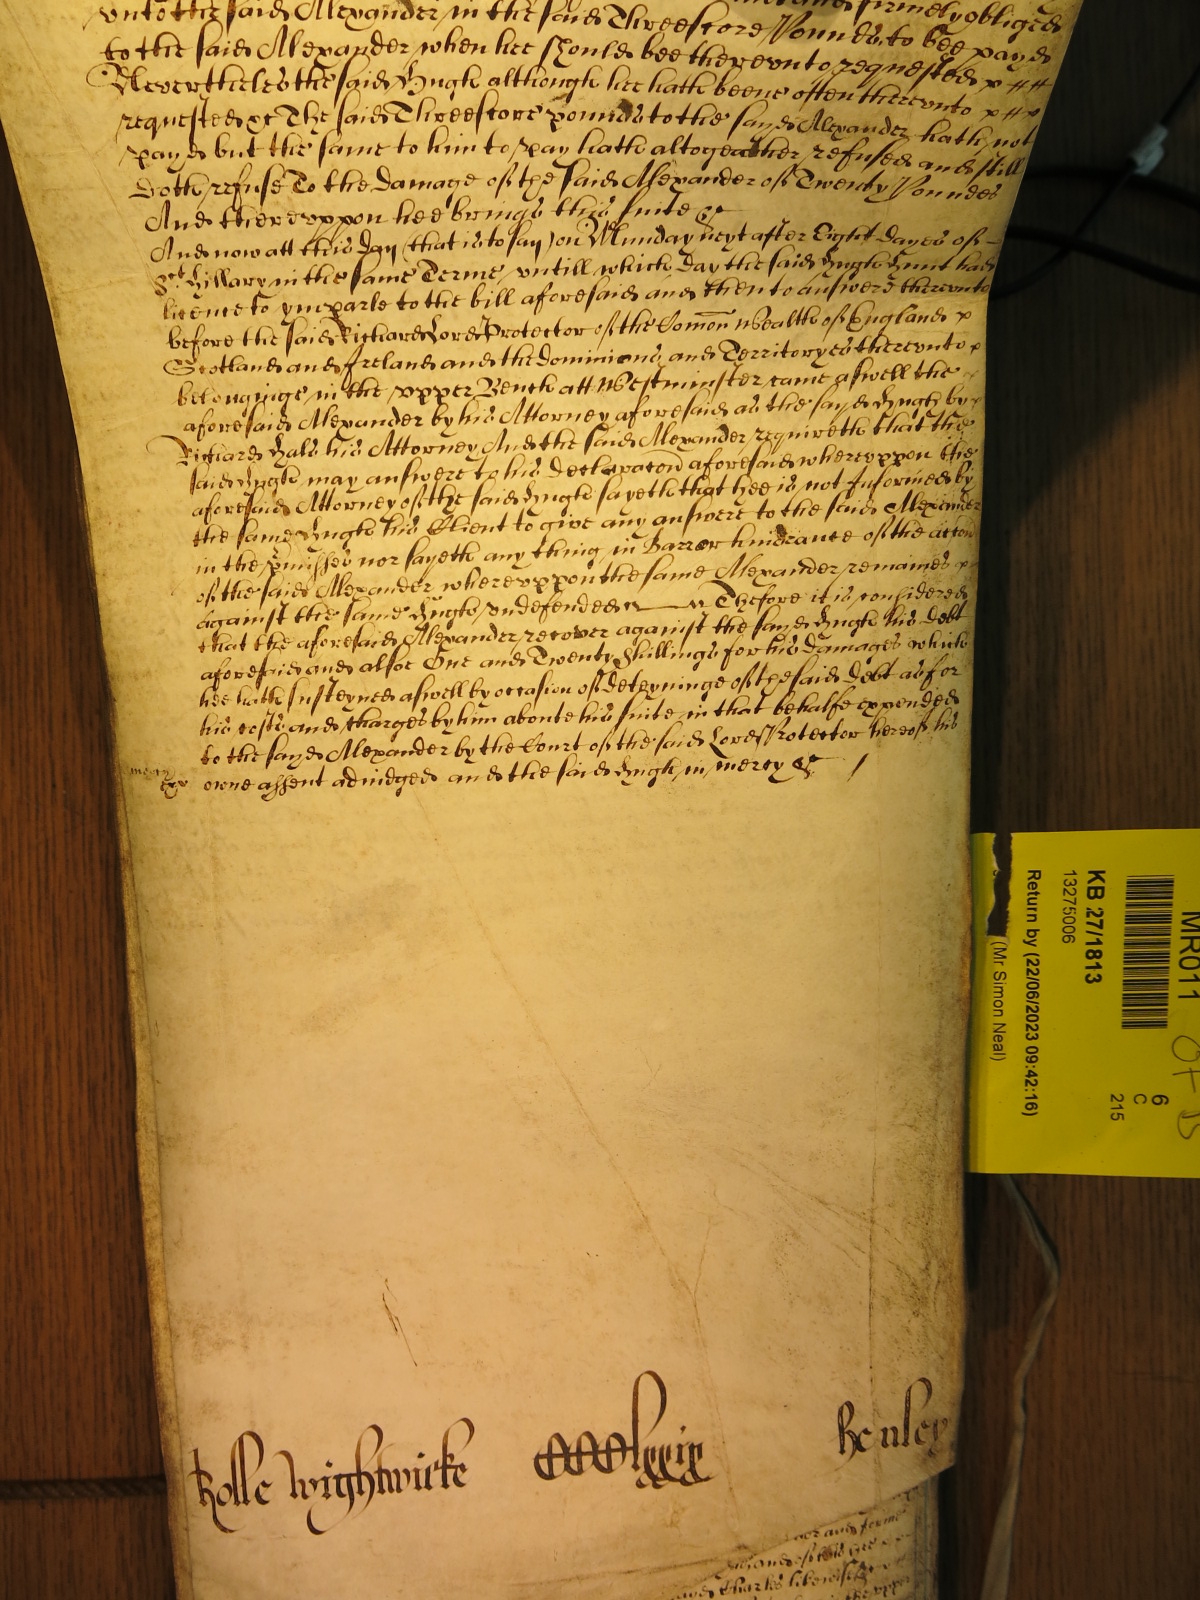 firmely obliged
unto the said Alexander in the said Threescore Pounds to bee payd
to the said Alexander when hee should bee thereunto requested
Neverthelesse the said Hugh although hee hath beene often thereunto
requested &c The said Threescore pounds to the sayd Alexander hath not
payd but the same to him to pay hath altogeather refused and still
doth refuse To the damage of the said Alexander of Twenty Poundes
And thereuppon hee brings this suite &c
And now att this day (that is to say) on Munday next after Eight dayes of
St Hillary in the same Terme untill which day the said Hugh Hunt had
licence to ymparle to the bill aforesaid and then to answere thereunto
before the said Richard Lord Protector of the Comon Wealth of England
Scotland and Ireland and the dominions and Territoryes thereunto
belonginge in the upper Bench att Westminster came aswell the
aforesaid Alexander by his Attorney aforesaid as the sayd Hugh by
Richard Hals his Attorney And the said Alexander requireth that the
said Hugh may answere to his declaracon aforesaid whereuppon the
aforesaid Attorney of the said Hugh sayeth that hee is not Informed by
the same Hugh his Client to give any answere to the said Alexander
in the pmisses nor sayeth any thing in Barr or hindrance of the accon
of the said Alexander whereuppon the same Alexander remaines
against the same Hugh undefended &c Thefore it is considered
that the aforesaid Alexander recover against the sayd Hugh his debt
aforesaid and alsoe One and Twenty shillings for his damages which
hee hath susteyned aswell by occasion of deteyninge of the said debt as for
his costs and charges by him aboute his suite in that behalfe expended
to the sayd Alexander by the Court of the said Lord Protector hereof his
mercy owne assent adiudged and the said Hugh in mercy &c
Rolle Wightwicke CCClxxix Henley
MR011
6
C
215
KB 27/1813
13275006
Return by (22/06/2023 09:42:16)
(Mr Simon Neal)
and Charles likewise